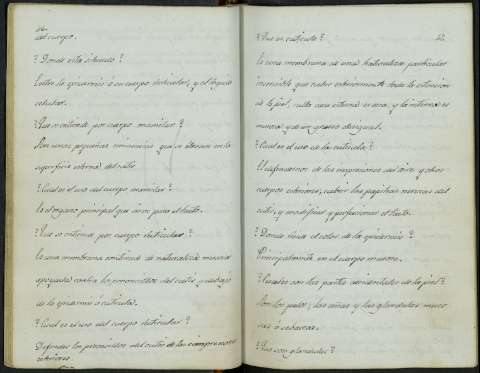 del cuerpo.
? Donde esta situado ?
Entre la epidermis ó su cuerpo reticular, y el tegido
celular.
? Que se entiende por cuerpo mamilar ?
Son unas pequeñas eminencias que se elevan en la
superficie externa del cutis
? Cual es el uso del cuerpo mamilar ?
Es el organo principal que sirve para el tacto.
? Que se entiende por cuerpo reticular ?
Es una membrana continua de naturaleza mucosa
apoyada contra las eminencias del cutis y debajo
de la epidermis ó cuticula.
? Cual es el uso del cuerpo reticular ?
Defender las eminencias del cutis de las compresiones
exteriores
? Que es cuticula ?
Es una membrana de una naturaleza particular
insensible que cubre exteriormente toda la extension
de la piel, cuya cara externa es seca, y la interna es
mucosa y de un grueso desigual.
? Cual es el uso de la cuticula ?
El defendernos de las impresiones del aire y otros
cuerpos exteriores, cubrir las papilas nerviosas del
cutis, y modificar y perfeccionar el tacto.
? Donde reside el color de la epidermis ?
Principalmente en el cuerpo mucoso.
? Cuales son las partes accidentales de la piel ?
Son los pelos, las uñas y las glandulas muco-
sas ó sebaceas.
? Que son glandulas ?